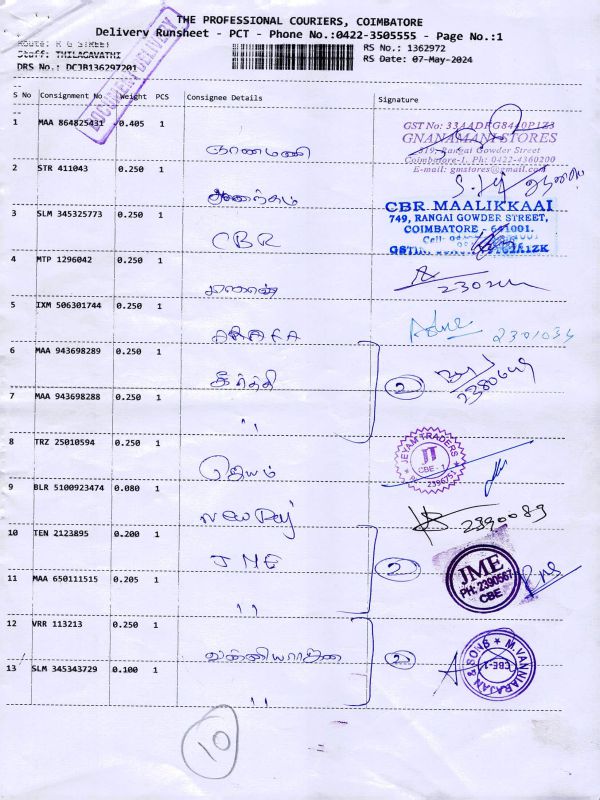 THE PROFESSIONAL COURIERS, COIMBATORE
Delivery Runsheet - PCT - Phone No.:0422-3505555 - Page No.:1
Route: R G STREET
RS No.: 1362972
Staff: THILAGAVATHI
RS Date: 07-May-2024
DRS No.: DCJB136297201
DOCUMENT DELIVERY
S No Consignment No Weight PCS Consignee Details Signature
1 MAA 864825431 0.405 1
ஞானமணி
GST No:
GNANAMANI STORES
819, Rangai Gowder Street
Coimbatore-1. Ph: 0422-4360200
E-mail: gmstores@gmail.com
2 STR 411043 0.250 1
3 SLM 345325773 0.250 1
CBR
CBR MAALIKKAAI
749, RANGAI GOWDER STREET,
COIMBATORE - 641001.
Cell:
4 MTP 1296042 0.250 1
5 IXM 506301744 0.250 1
2301034
6 MAA 943698289 0.250 1
கீர்த்தி
2
7 MAA 943698288 0.250 1
"
8 TRZ 25010594 0.250 1
ஜெயம்
JEYAM TRADERS
JT
CBE - 1
9 BLR 5100923474 0.080 1
2390089
10 TEN 2123895 0.200 1
JME
2
JME
PH: 2390567
CBE
11 MAA 650111515 0.205 1
"
12 VRR 113213 0.250 1
2
M.VANNIARAJAN & SONS
CBE-1
13 SLM 345343729 0.100 1
"
10